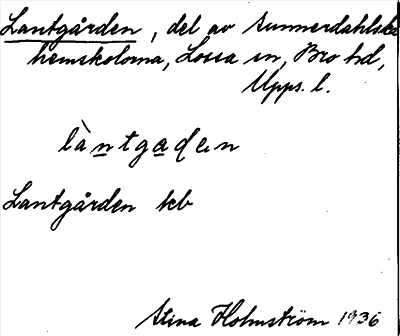 Lantgården, del av Sunnerdahlska
hemskolorna, Lossa sn, Bro hd,
Upps. l.
là̱ntga̱ḍen
Lantgården kb
Stina Holmström 1936